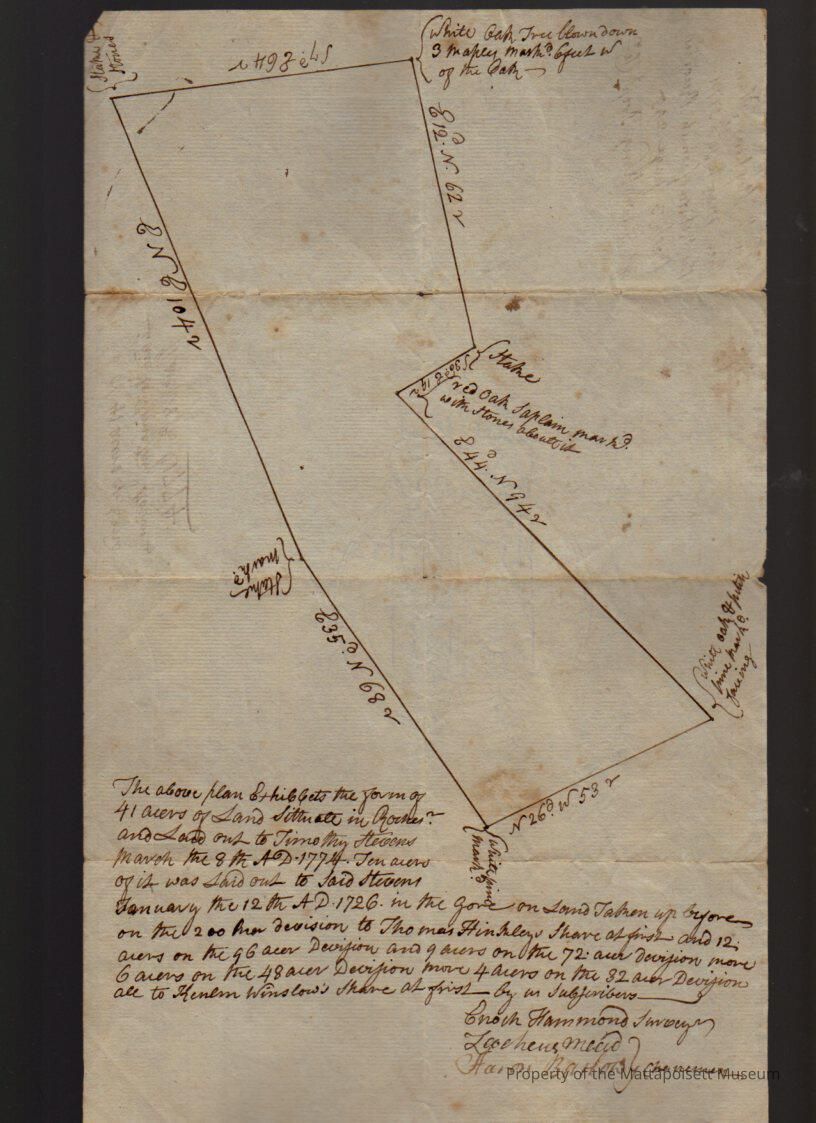 Stake & Stones
S 7° E 64 r
White Oak Tree blown down
3 maples mark.d 6 feet W
of the Oak
E 12.d N 62 r
Stake
S 36 E 19 r
red Oak Saplain mark.d
with Stones about it
E 44.d N 94 r
White oak & pitch
pine mark.d
faceing
N 26.d W 53 r
White pine
mark.d
E 35.d N 89 r
Stake
mark.d
E N E 104 r
The above plan Exhibbets the form of
41 acers of Land Sittuate in Roches.r
and Laid out to Timothy Stevens
March the 8th A D. 1774. Ten acers
of it was Laid out to Said Stevens
January the 12th A D. 1726. in the Gore on Land Taken up before
on the 200 decision to Thomas Hinkleys Share at frist and 12
acers on the 96 acer Devision and 9 acers on the 72 acer devision more
6 acers on the 48 acer Devision more 4 acers on the 32 acer Devision
all to Kenelm Winslow's Share at frist by us Subscribers
Enoch Hammond Survey.r
Zacheus Mead
Aaron
Chainemen
Property of the Mattapoisett Museum